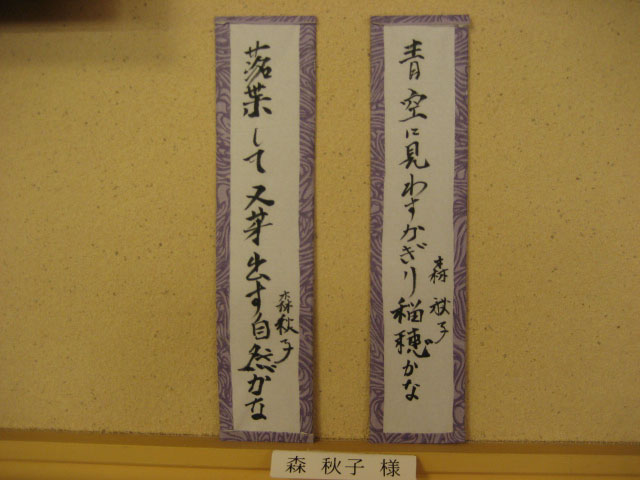 青空に見わすかぎり稲穂かな
森 秋子
落葉して又芽出す自然かな
森秋子
森 秋子 様